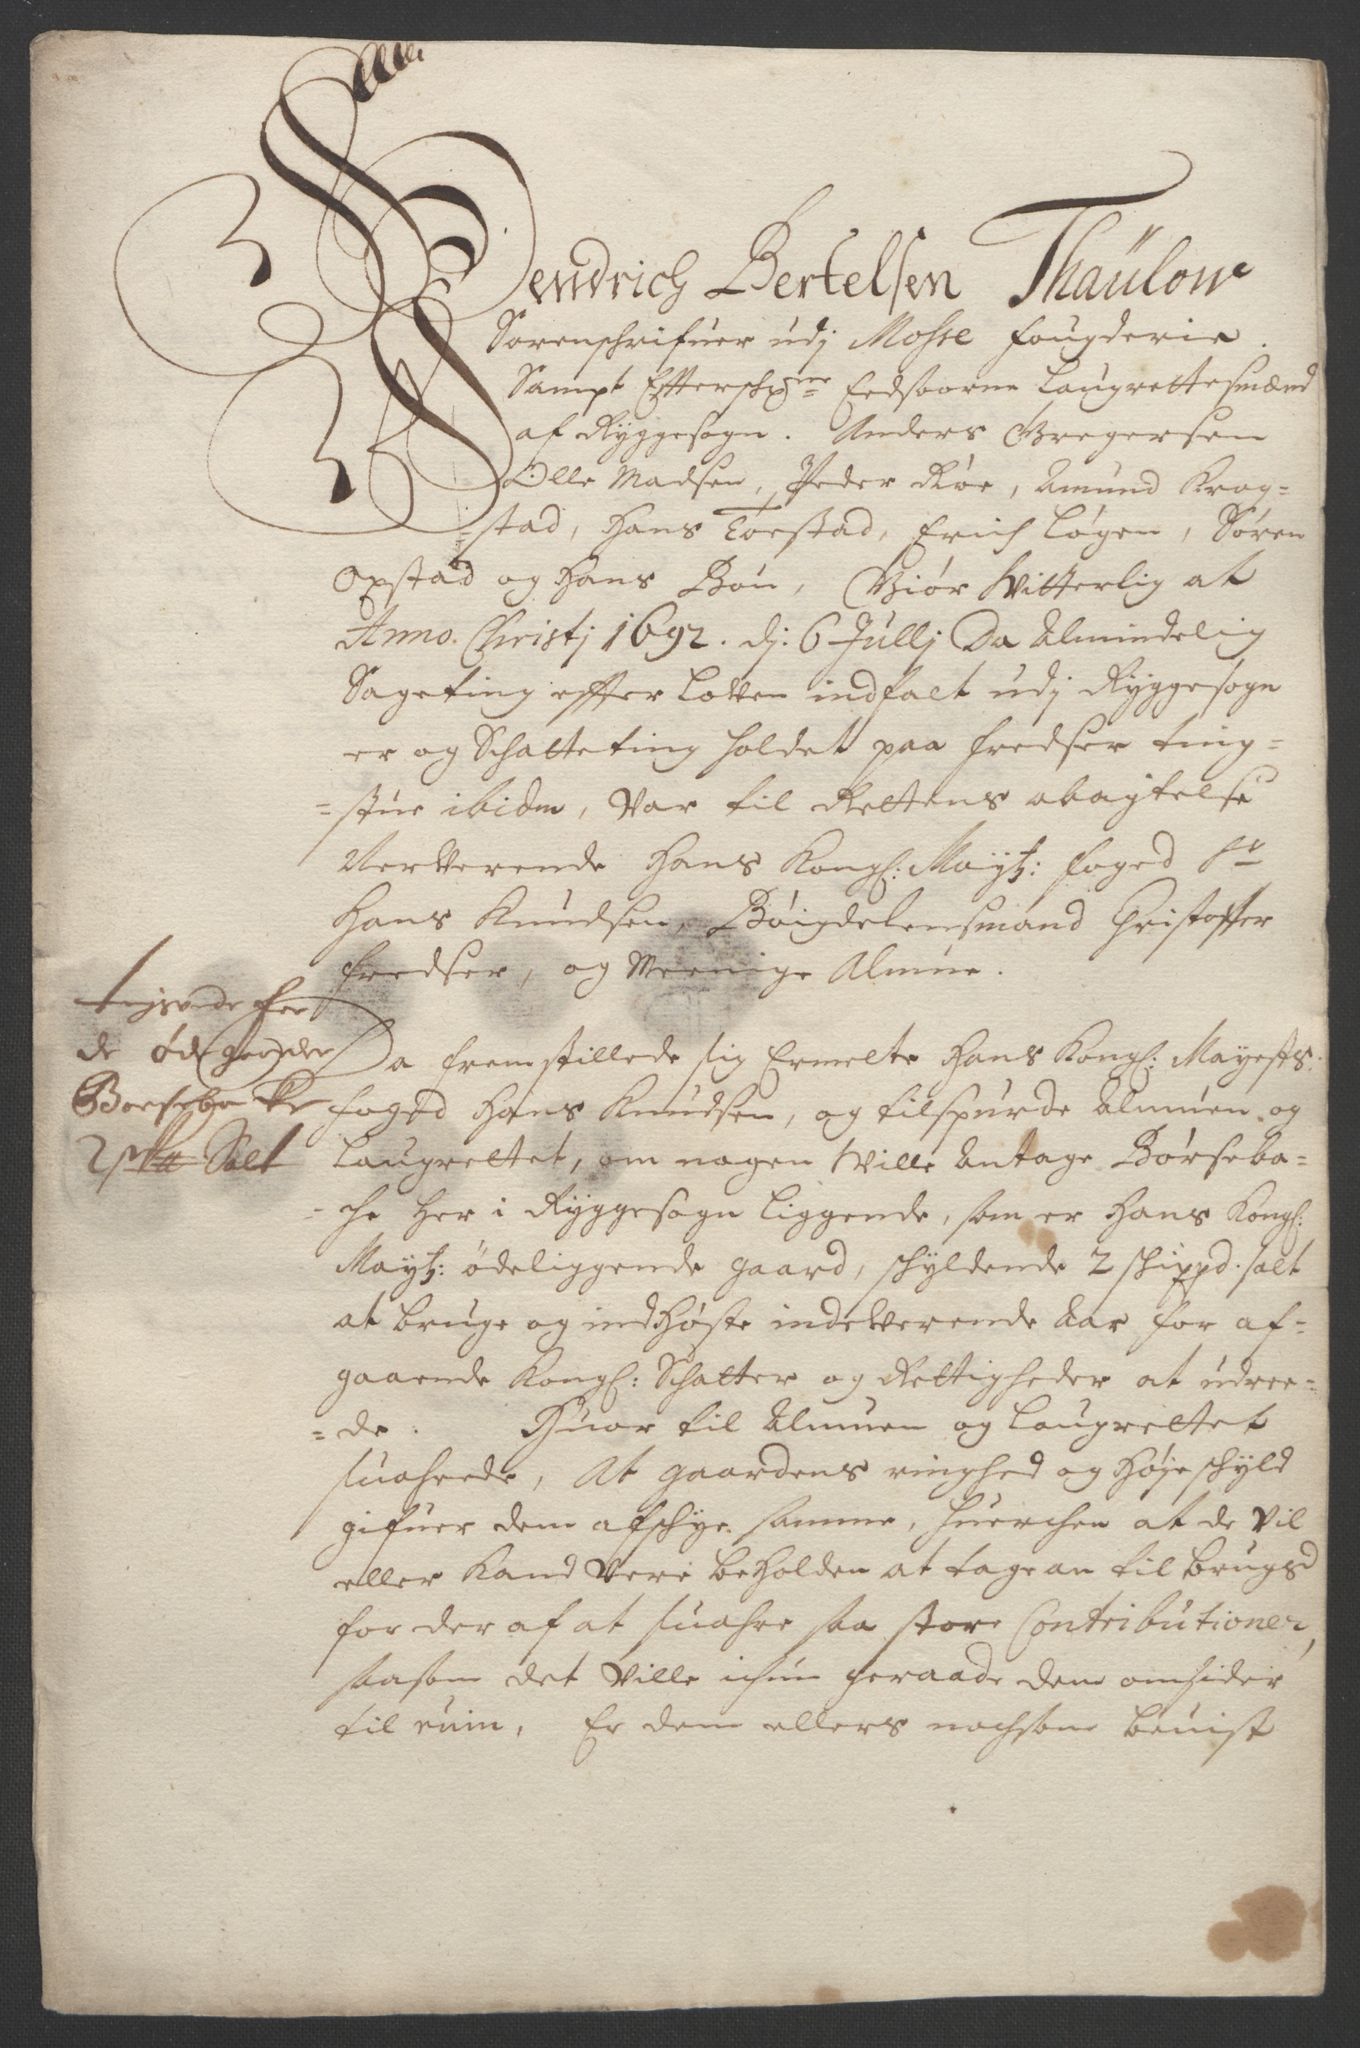 Hendrich Bertelsen Thaulow
Sorenschrifuer udj Mosse fougderie.
Sampt Effterschne Eedsoorne Laugrettesmænd
af Ryggesogn. Anders Gregersen
Olle Madsen, Peder Röe, Amund Krog=
=stad, Hans Torstad, Erich Løgen, Søren
Opstad og Hans Bøn, Giør Witterlig at
Anno. Christj 1692. dj. 6 Jullj Da Almindelig
Sageting effter Loven indfalt udj Ryggesogn
er og Schatteting holdet paa Fredser ting=
=stue ibidm, Var til Rettens abagtelse
Nerverende Hans Kongl: Maytz: foged Sr
Hans Knudsen, Böigdelensmand Christoffer
Fredser, og Meenige Almue.
Tingsvide for
de øde gaarder
Børsebache
2 Salt
Da fremstillede sig Ermelte Hans Kongl: Mayests:
foged Hans Knudsen, og tilspurde Almuen og
Laugrettet, om nogen Wille Antage Børseba=
=che her i Ryggesogn Liggende, som er Hans Kongl:
Maytz: ödeliggende gaard, schyldende 2 schippd. salt
at bruge og indhøste indeverende Aar for af=
gaaende Kongl: Schatter og Rettigheder at udree=
=de. Huor til Almuen og Laugrettet
suarede, At gaardens ringhed og høje schyld
gifuer dem afschye samme, huerchen at de vil
eller kand Vere beholden at tage an til brugs
for der af at suare saa store Contributioner,
saasom det Ville ichun geraade dem omsider
til ruin, Er dem ellers nochsom beuist